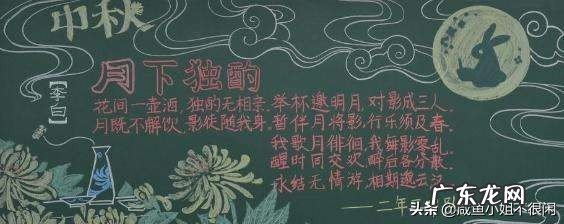 中秋
月下独酌
【李白】
花间一壶酒,独酌无相亲.举杯邀明月,对影成三人.
月既不解饮,影徒随我身.暂伴月将影,行乐须及春.
我歌月徘徊,我舞影零乱.
醒时同交欢,醉后各分散.
永结无情游,相期邈云汉.
二年
广东龙网
头条 @咸鱼小姐不很闲